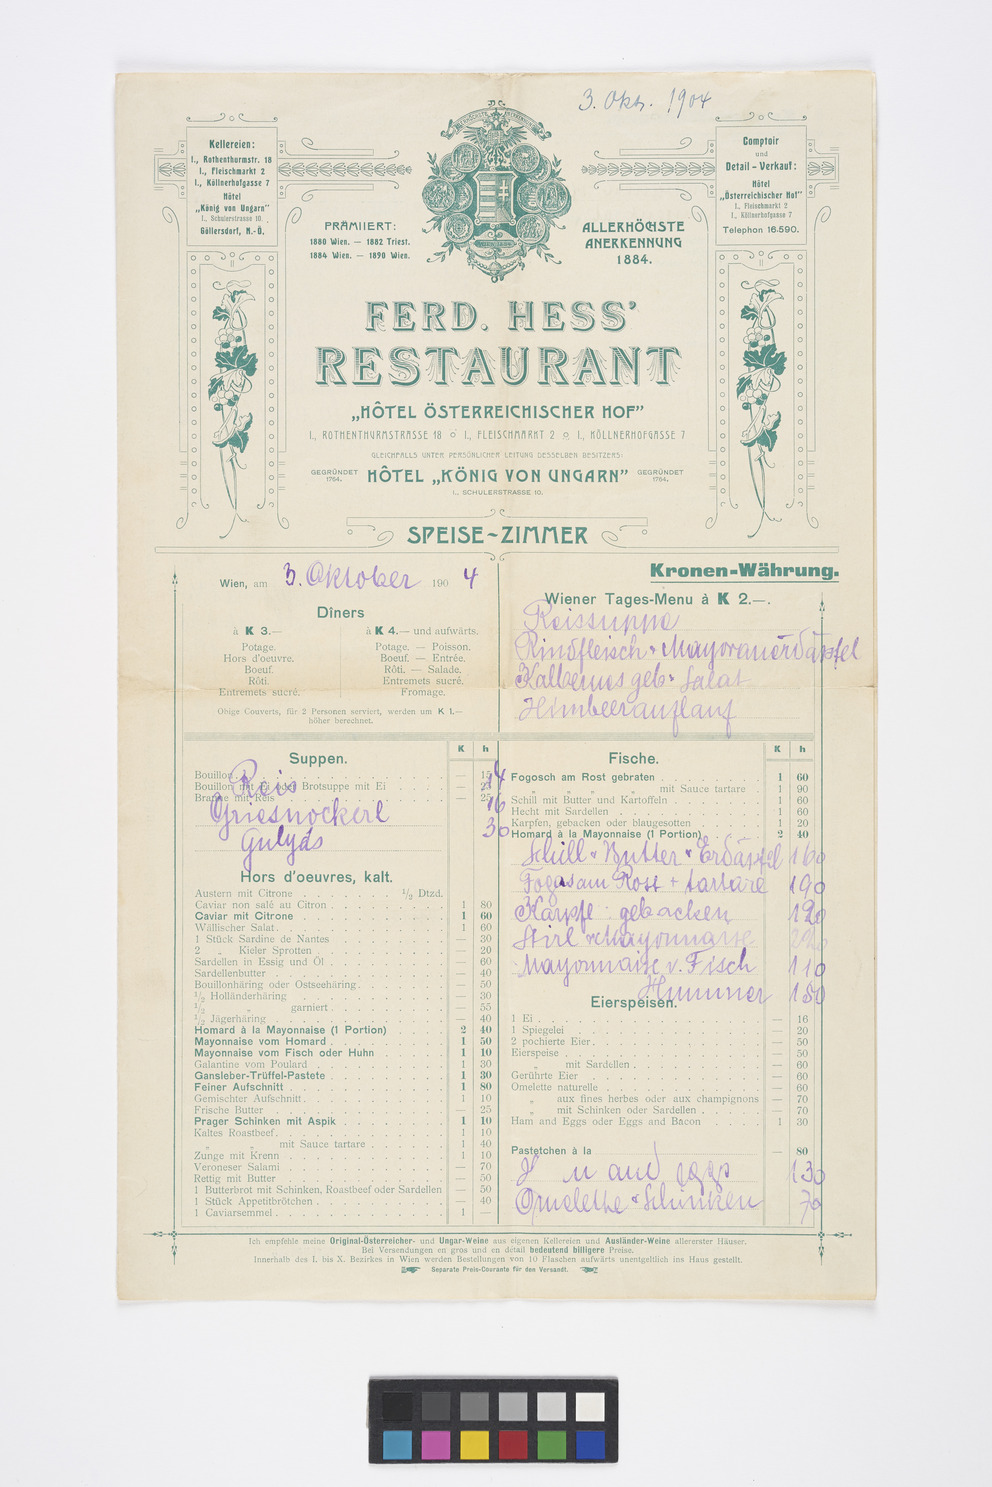 3. Okt. 1904
Kellereien:
I., Rothenthurmstr. 18
I., Fleischmarkt 2
I., Köllnerhofgasse 7
Hôtel
„König von Ungarn"
I., Schulerstrasse 10.
Göllersdorf, N.-Ö.
PRÄMIIERT:
1880 Wien. — 1882 Triest.
1884 Wien. — 1890 Wien.
ALLERHÖCHSTE
ANERKENNUNG
1884.
Comptoir
und
Detail - Verkauf:
Hôtel
„Österreichischer Hof"
I., Fleischmarkt 2
I., Köllnerhofgasse 7
Telephon 16.590.
FERD. HESS'
RESTAURANT
„HÔTEL ÖSTERREICHISCHER HOF"
I., ROTHENTHURMSTRASSE 18 o I., FLEISCHMARKT 2 o I., KÖLLNERHOFGASSE 7
GLEICHFALLS UNTER PERSÖNLICHER LEITUNG DESSELBEN BESITZERS:
GEGRÜNDET 1764. HÔTEL „KÖNIG VON UNGARN" GEGRÜNDET 1764.
I., SCHULERSTRASSE 10.
SPEISE-ZIMMER
Wien, am 3. Oktober 190 4
Dîners
à K 3.—
Potage.
Hors d'oeuvre.
Boeuf.
Rôti.
Entremets sucré.
à K 4.— und aufwärts.
Potage. — Poisson.
Boeuf. — Entrée.
Rôti. — Salade.
Entremets sucré.
Fromage.
Obige Couverts, für 2 Personen serviert, werden um K 1.—
höher berechnet.
Kronen-Währung.
Wiener Tages-Menu à K 2.—.
Reissuppe
Rindfleisch + Mayoranerdäpfel
Kalbernes geb: Salat
Himbeerauflauf
K h
Suppen.
Bouillon 15
Bouillon mit Ei oder Brotsuppe mit Ei
Braune mit Reis — 25
Reis 14
Griesnockerl 16
Gulyás 30
Hors d'oeuvres, kalt.
Austern mit Citrone 1/2 Dtzd.
Caviar non salé au Citron 1 80
Caviar mit Citrone 1 60
Wällischer Salat 1 60
1 Stück Sardine de Nantes — 30
2 „ Kieler Sprotten — 20
Sardellen in Essig und Öl — 60
Sardellenbutter — 40
Bouillonhäring oder Ostseehäring — 50
1/2 Holländerhäring — 30
1/2 „ garniert — 55
1/2 Jägerhäring — 40
Homard à la Mayonnaise (1 Portion) 2 40
Mayonnaise vom Homard 1 50
Mayonnaise vom Fisch oder Huhn 1 10
Galantine vom Poulard 1 30
Gansleber-Trüffel-Pastete 1 30
Feiner Aufschnitt 1 80
Gemischter Aufschnitt 1 10
Frische Butter — 25
Prager Schinken mit Aspik 1 10
Kaltes Roastbeef 1 10
„ „ mit Sauce tartare 1 40
Zunge mit Krenn 1 10
Veroneser Salami — 70
Rettig mit Butter — 50
1 Butterbrot mit Schinken, Roastbeef oder Sardellen — 50
1 Stück Appetitbrötchen — 40
1 Caviarsemmel 1 —
K h
Fische.
Fogosch am Rost gebraten 1 60
„ „ „ „ mit Sauce tartare 1 90
Schill mit Butter und Kartoffeln 1 60
Hecht mit Sardellen 1 60
Karpfen, gebacken oder blaugesotten 1 20
Homard à la Mayonnaise (1 Portion) 2 40
Schill + Butter + Erdäpfel 160
Fogas am Rost + tartare 190
Karpfe gebacken 120
Mayonnaise v. Fisch 110
Hummer 150
Eierspeisen.
1 Ei — 16
1 Spiegelei — 20
2 pochierte Eier — 50
Eierspeise — 50
„ mit Sardellen — 60
Gerührte Eier — 60
Omelette naturelle — 60
„ aux fines herbes oder aux champignons — 70
„ mit Schinken oder Sardellen — 70
Ham and Eggs oder Eggs and Bacon 1 30
Pastetchen à la — 80
and eggs 130
Omelette + Schinken 70
Ich empfehle meine Original-Österreicher- und Ungar-Weine aus eigenen Kellereien und Ausländer-Weine allererster Häuser.
Bei Versendungen en gros und en détail bedeutend billigere Preise.
Innerhalb des I. bis X. Bezirkes in Wien werden Bestellungen von 10 Flaschen aufwärts unentgeltlich ins Haus gestellt.
Separate Preis-Courante für den Versandt.